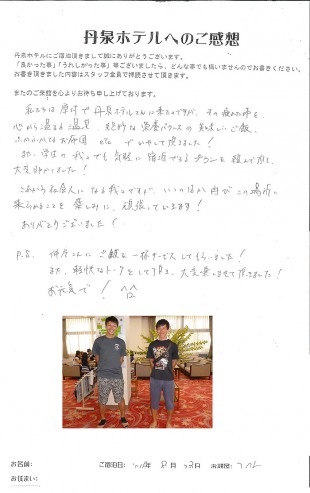 丹泉ホテルへのご感想
丹泉ホテルにご宿泊頂きまして誠にありがとうございます。
「良かった事」「うれしかった事」等ございましたら、どんな事でも構いませんのでお書きください。
お書き頂きました内容はスタッフ全員で拝読させて頂きます。
またのご来館を心よりお待ち申し上げております。
私たちは原付で丹泉ホテルさんに来たのですが、その疲れた体を、
心から温まる温泉、絶妙な栄養バランスの美味しいご飯、
ふかふかのお布団 etc でいやして頂きました!
また、学生の我々でも気軽に宿泊できるプランを組んで頂き、
大変助かりました!
これから社会人になる我々ですが、いつの日か自分でこの場所に
来られることを楽しみに、頑張っていきます!
ありがとうございました!
P.S. 仲居さんにご飯を一杯サービスして頂いました!
また、軽快なトークをして頂き、大変楽しませて頂きました!
お元気で! ^^
お名前:
ご宿泊日: 8月 23日
お部屋:
お住まい: